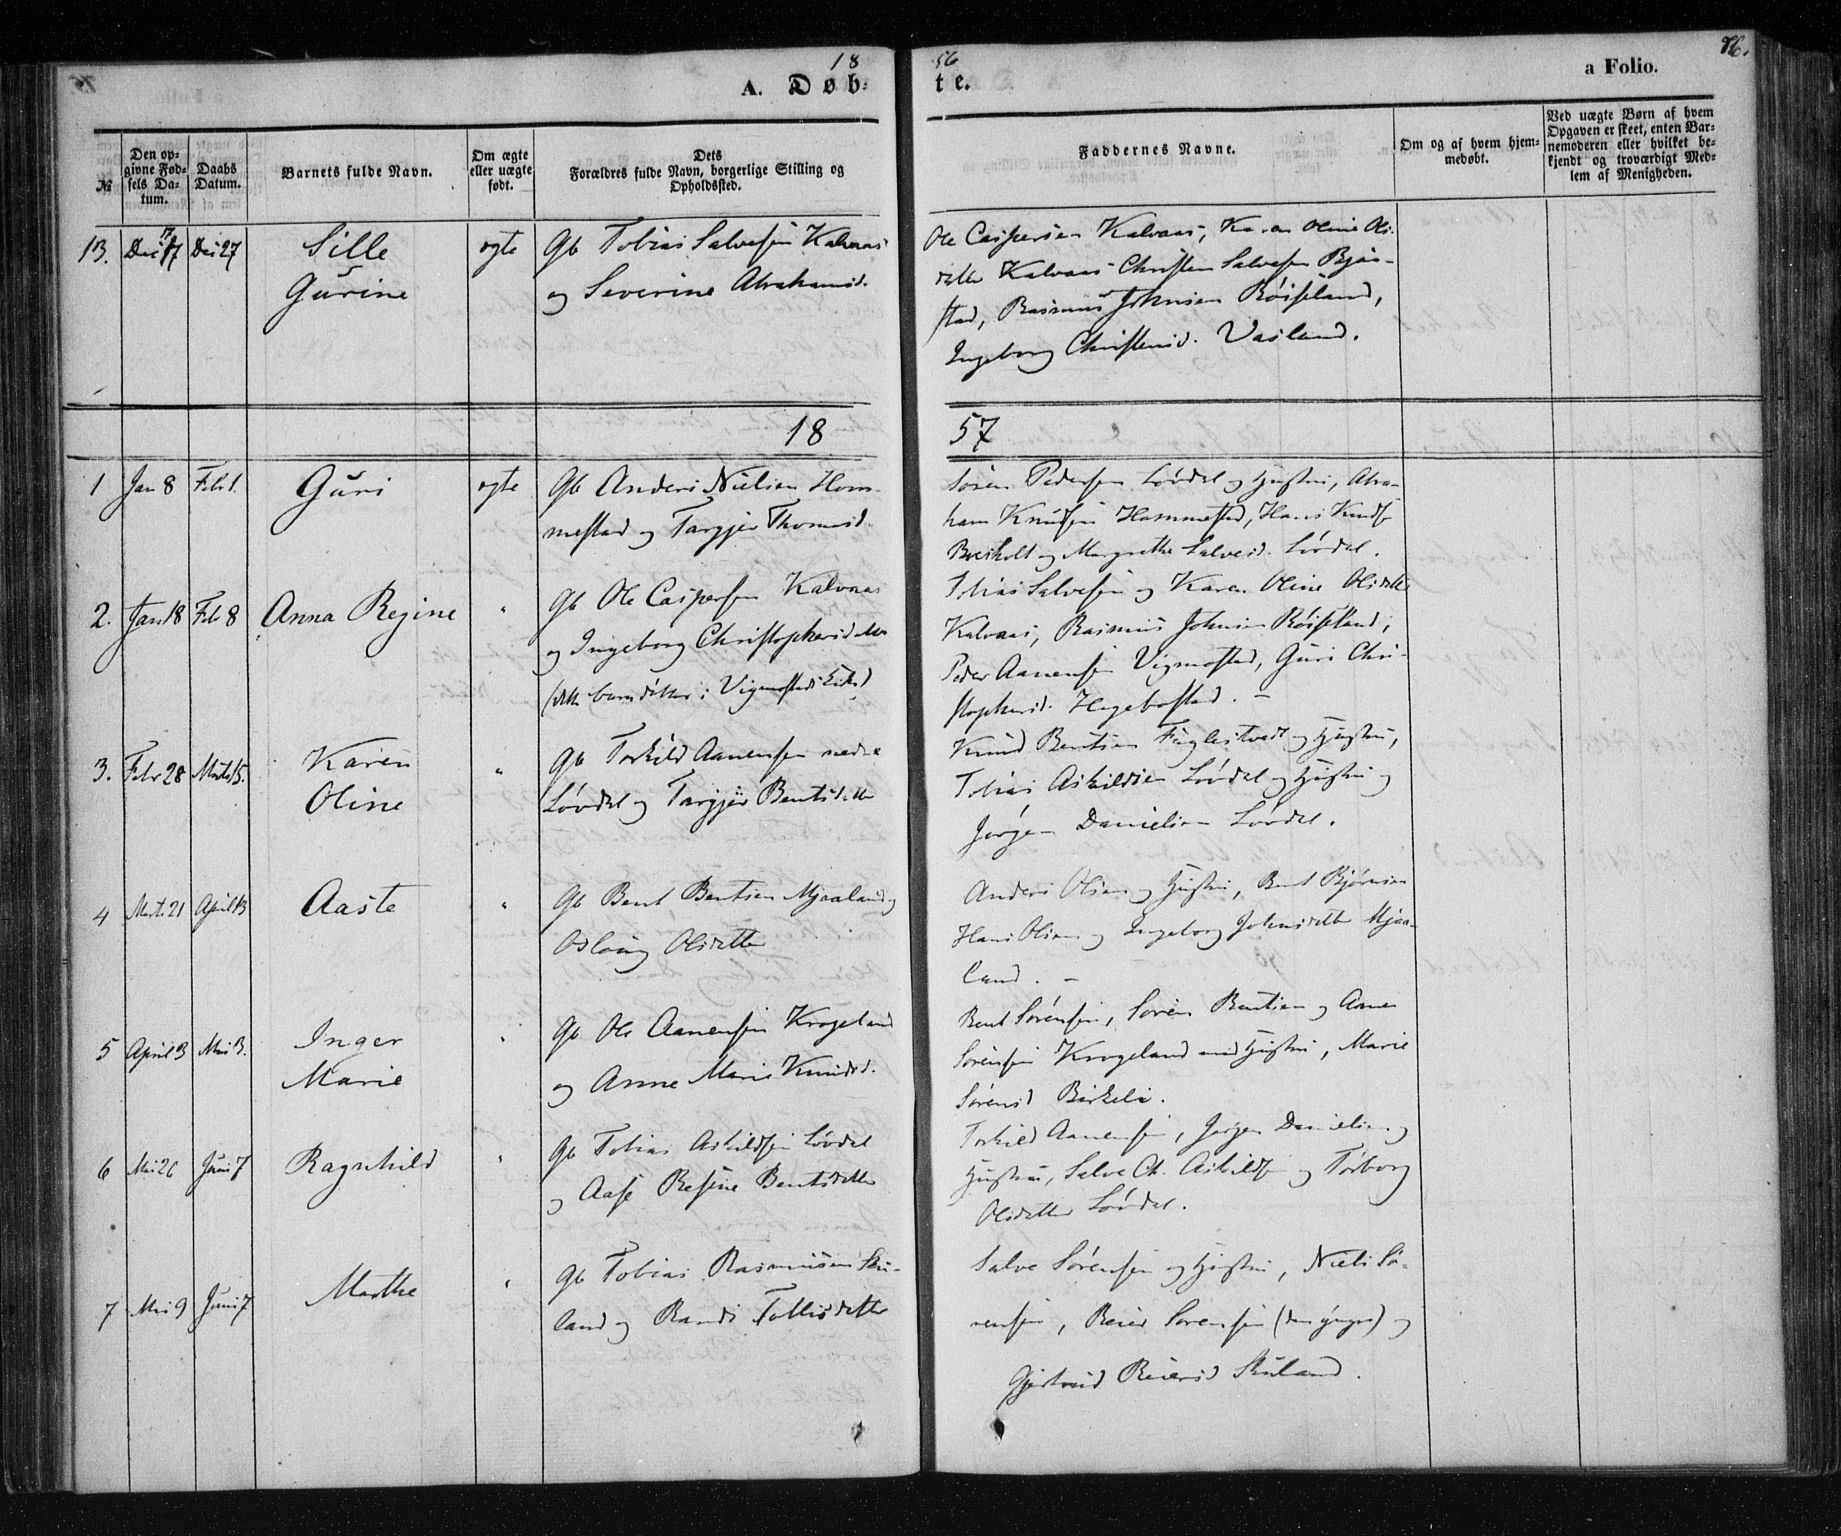 18 56 76.
A. Døb- te. a Folio.
№
Den op-
givne Fød-
sels Da-
tum.
Daabs
Datum.
Barnets fulde Navn.
Om ægte
eller uægte
født.
Dets
Forældres fulde Navn, borgerlige Stilling og
Opholdssted.
Faddernes Navne.
Om og af hvem hjem-
medøbt.
Ved uægte Børn af hvem
Opgaven er skeet, enten Bar-
nemoderen eller hvilket be-
kjendt og troværdigt Med-
lem af Menigheden.
13. Dec 17 Dec 27 Sille
Gurine
ægte
Gb Tobias Salvesen Kalvaas
og Severine Abrahamsd.
Ole Caspersen Kalvaas, Karen Oline Ols-
datter Kalvaas Christen Salvesen Bjør-
stad, Rasmus Johnsen Röiseland,
Ingeborg Christensd. Vasland.
18 57
1 Jan 8 Febr 1. Guri ægte
Gb Anders Nielsen Hom-
mestad og Targjer Thomasd.
Sören Pedersen Lövdal og Hustru, Abra-
ham Knudsen Hommestad, Hans Knuds
og Margrethe Salvesd. Lövdal.
2. Jan 18 Feb 8 Anna Regine "
Gb Ole Caspersen Kalvaas
og Ingeborg Christophersdatter
i Vigmostad
Tobias Salvesen og Karen Oline Olsdatter
Kalvaas, Rasmus Johnsen Röiseland,
Peder Aanensen Vigmostad, Guri Chri-
stophersd. Hegebostad. -
3. Febr 28 Marts 15. Karen
Oline
"
Gb Torkild Aanensen nedre
Lövdal og Targjer Bentsdatter
Knud Bentsen Fuglestvedt og Hustru,
Tobias Askildsen Lövdal og Hustru og
Jörgen Danielsen Lövdal.
4 Marts 21 April 13 Aaste "
Gb Bent Bentsen Mjaaland og
Oslaug Olsdatter
Anders Olsen og Hustru, Bent Bjørnsen
Hans Olsen og Ingeborg Johnsdatter Mjaa-
land. -
5 April 3 Mai 3. Inger
Marie
"
Gb Ole Aanensen Krogeland
og Anne Marie Knudsd.
Bent Sörensen, Sören Bentsen og Aanen
Sörensen Krogeland med Hustru, Marie
Sörensd Birkeli.
6 Mai 26 Juni 7 Ragnhild "
Gb Tobias Askildsen Lövdal
og Aase Resine Bentsdatter
Torkild Aanensen, Jörgen Danielsen og
Hustru, Salve Ch. Askilds og Torborg
Olsdatter Lövdal.
7 Mai 9 Juni 7 Marthe "
Gb Tobias Rasmussen Sku-
land og Randi Tollisdatter
Salve Sörensen og Hustru, Niels Sö-
rensen, Reier Sörensen (den yngre) og
Gjertrud Reiersd Skuland.